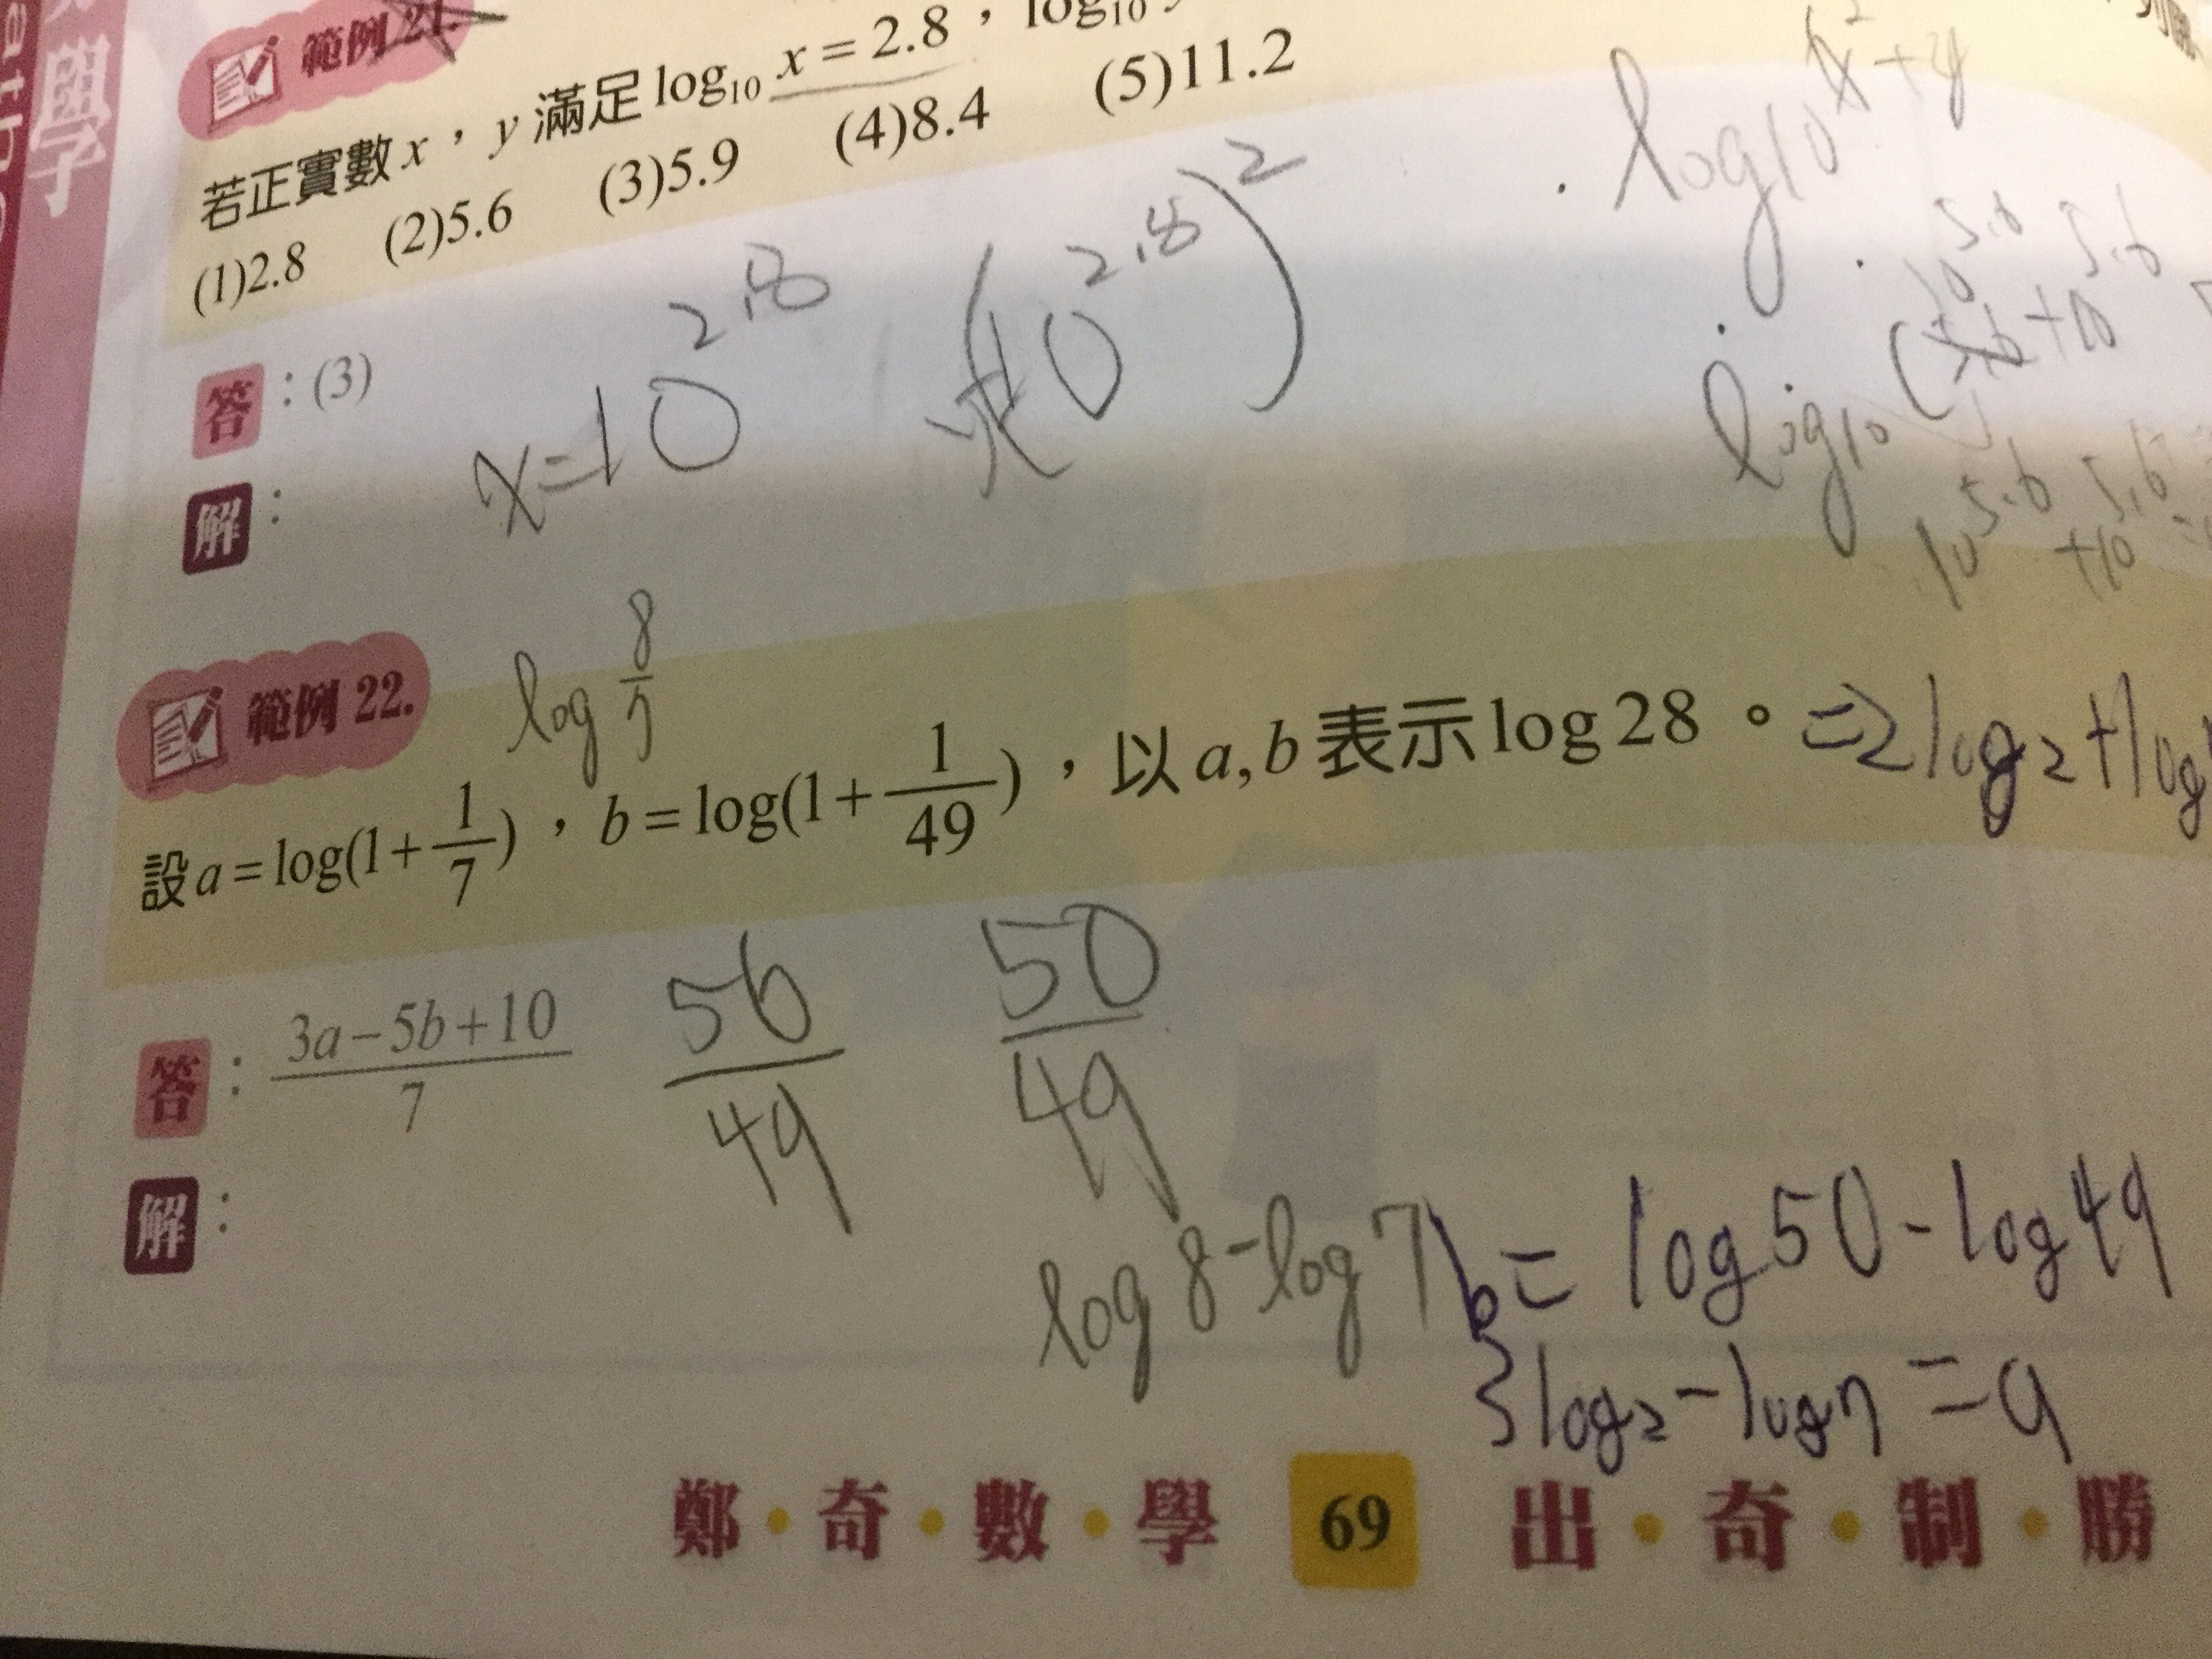 學
範例 21.
若正實數 x，y 滿足 log₁₀ x = 2.8，log₁₀
(1)2.8 (2)5.6 (3)5.9 (4)8.4 (5)11.2
log10 x²+y
答：(3)
x=10^2.8 (10^2.8)²
log10 (10^5.6+10^5.6
解：
10^5.6+10^5.6
範例 22.
log 8/7
設 a = log(1+1/7)，b = log(1+1/49)，以 a, b 表示 log 28。=2log2+log
答：(3a−5b+10)/7
56/49 50/49
解：
log8-log7
b=log50-log49
3log2-log7=a
鄭・奇・數・學 69 出・奇・制・勝